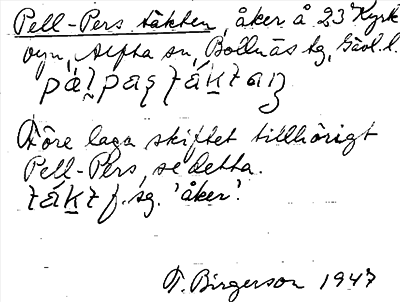 Pell-Pers täkten, åker å 23 Kyrk
byn, Alfta sn, Bollnäs tg, Gävl l.
Före laga skiftet tillhörigt
Pell-Pers, se detta.
f. sg. 'åker'.
T. Birgerson 1947